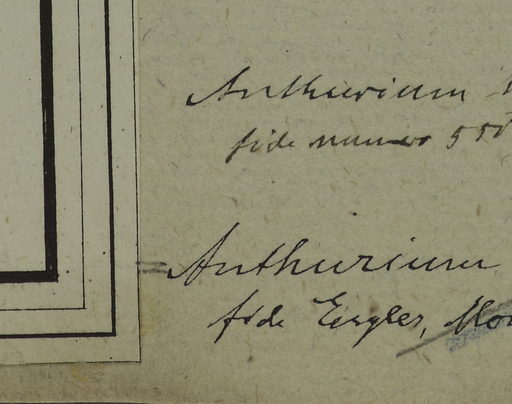 Anthurium
fide numero 55
= Anthurium
fide Engler, Mon